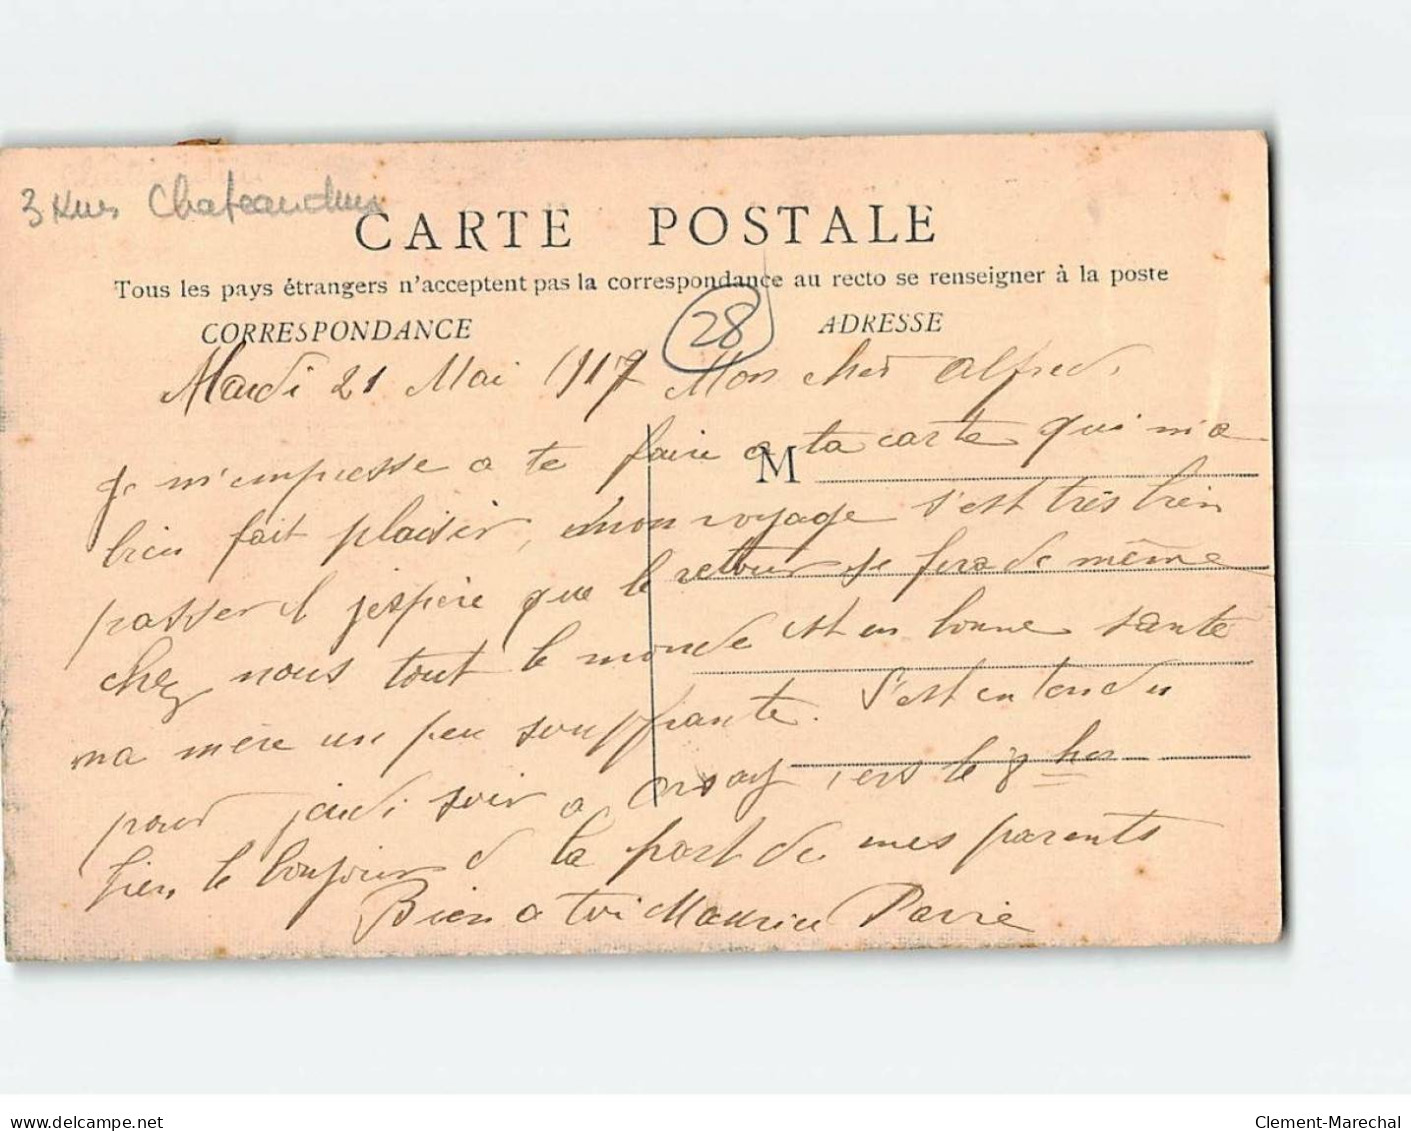 3 vues Chateaudun
CARTE POSTALE
Tous les pays étrangers n'acceptent pas la correspondance au recto se renseigner à la poste
CORRESPONDANCE
28
ADRESSE
M
Mardi 21 Mai 1917 Mon cher Alfred,
Je m'empresse a te faire a ta carte qui m'a
bien fait plaisir, mon voyage s'est très bien
passer et j'espère que le retour se fera de même
chez nous tout le monde est en bonne santé
ma mère un peu souffrante. S'est entendu
pour jeudi soir a Orsay vers le 8 hes
bien le bonjour d la part de mes parents
Bien a toi Maurice Pavie
www.delcampe.net
Clement-Marechal